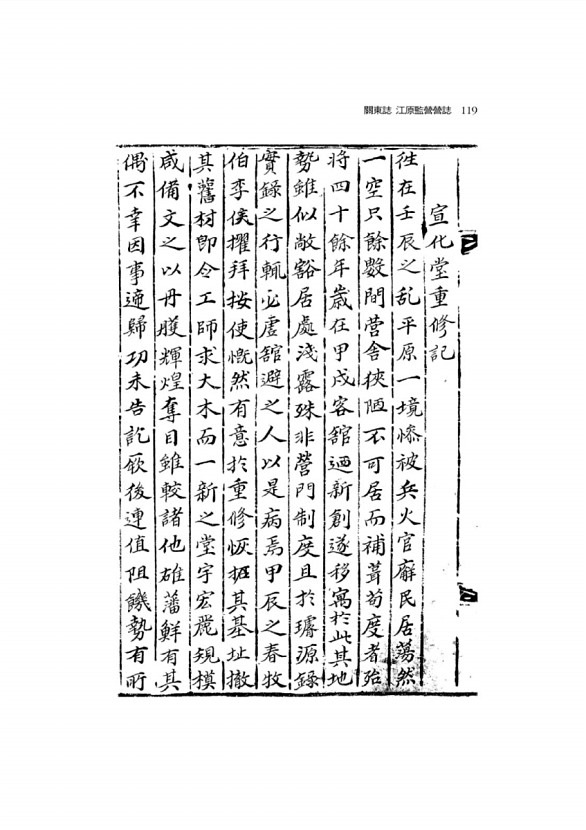 關東誌 江原監營營誌 119
宣化堂重修記
徃在壬辰之乱平原一境慘被兵火官廨民居蕩然
一空只餘數間营舍狹陋不可居而補葺苟度者殆
將四十餘年歲在甲戌客舘廼新創遂移寓於此其地
勢雖似敞豁居處淺露殊非營門制度且於璿源錄
實錄之行輒必虛舘避之人以是病焉甲辰之春牧
伯李侯擢拜按使慨然有意於重修恢拓其基址撤
其舊材卽令工師求大木而一新之堂宇宏麗規模
咸備文之以丹雘輝煌奪目雖較諸他雄藩鮮有其
偶不幸因事遞歸功未告訖厥後連值阻饑勢有所